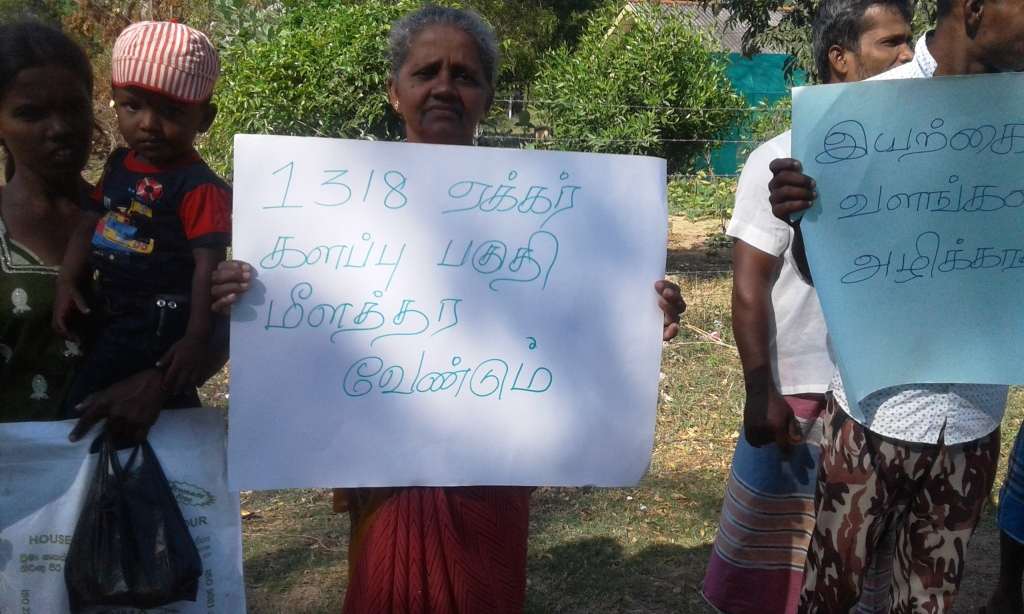 1318 ஏக்கர்
களப்பு பகுதி
மீளத்தர
வேண்டும்
இயற்கை
வளங்க
அழிக்கா
HOUSE
OUR